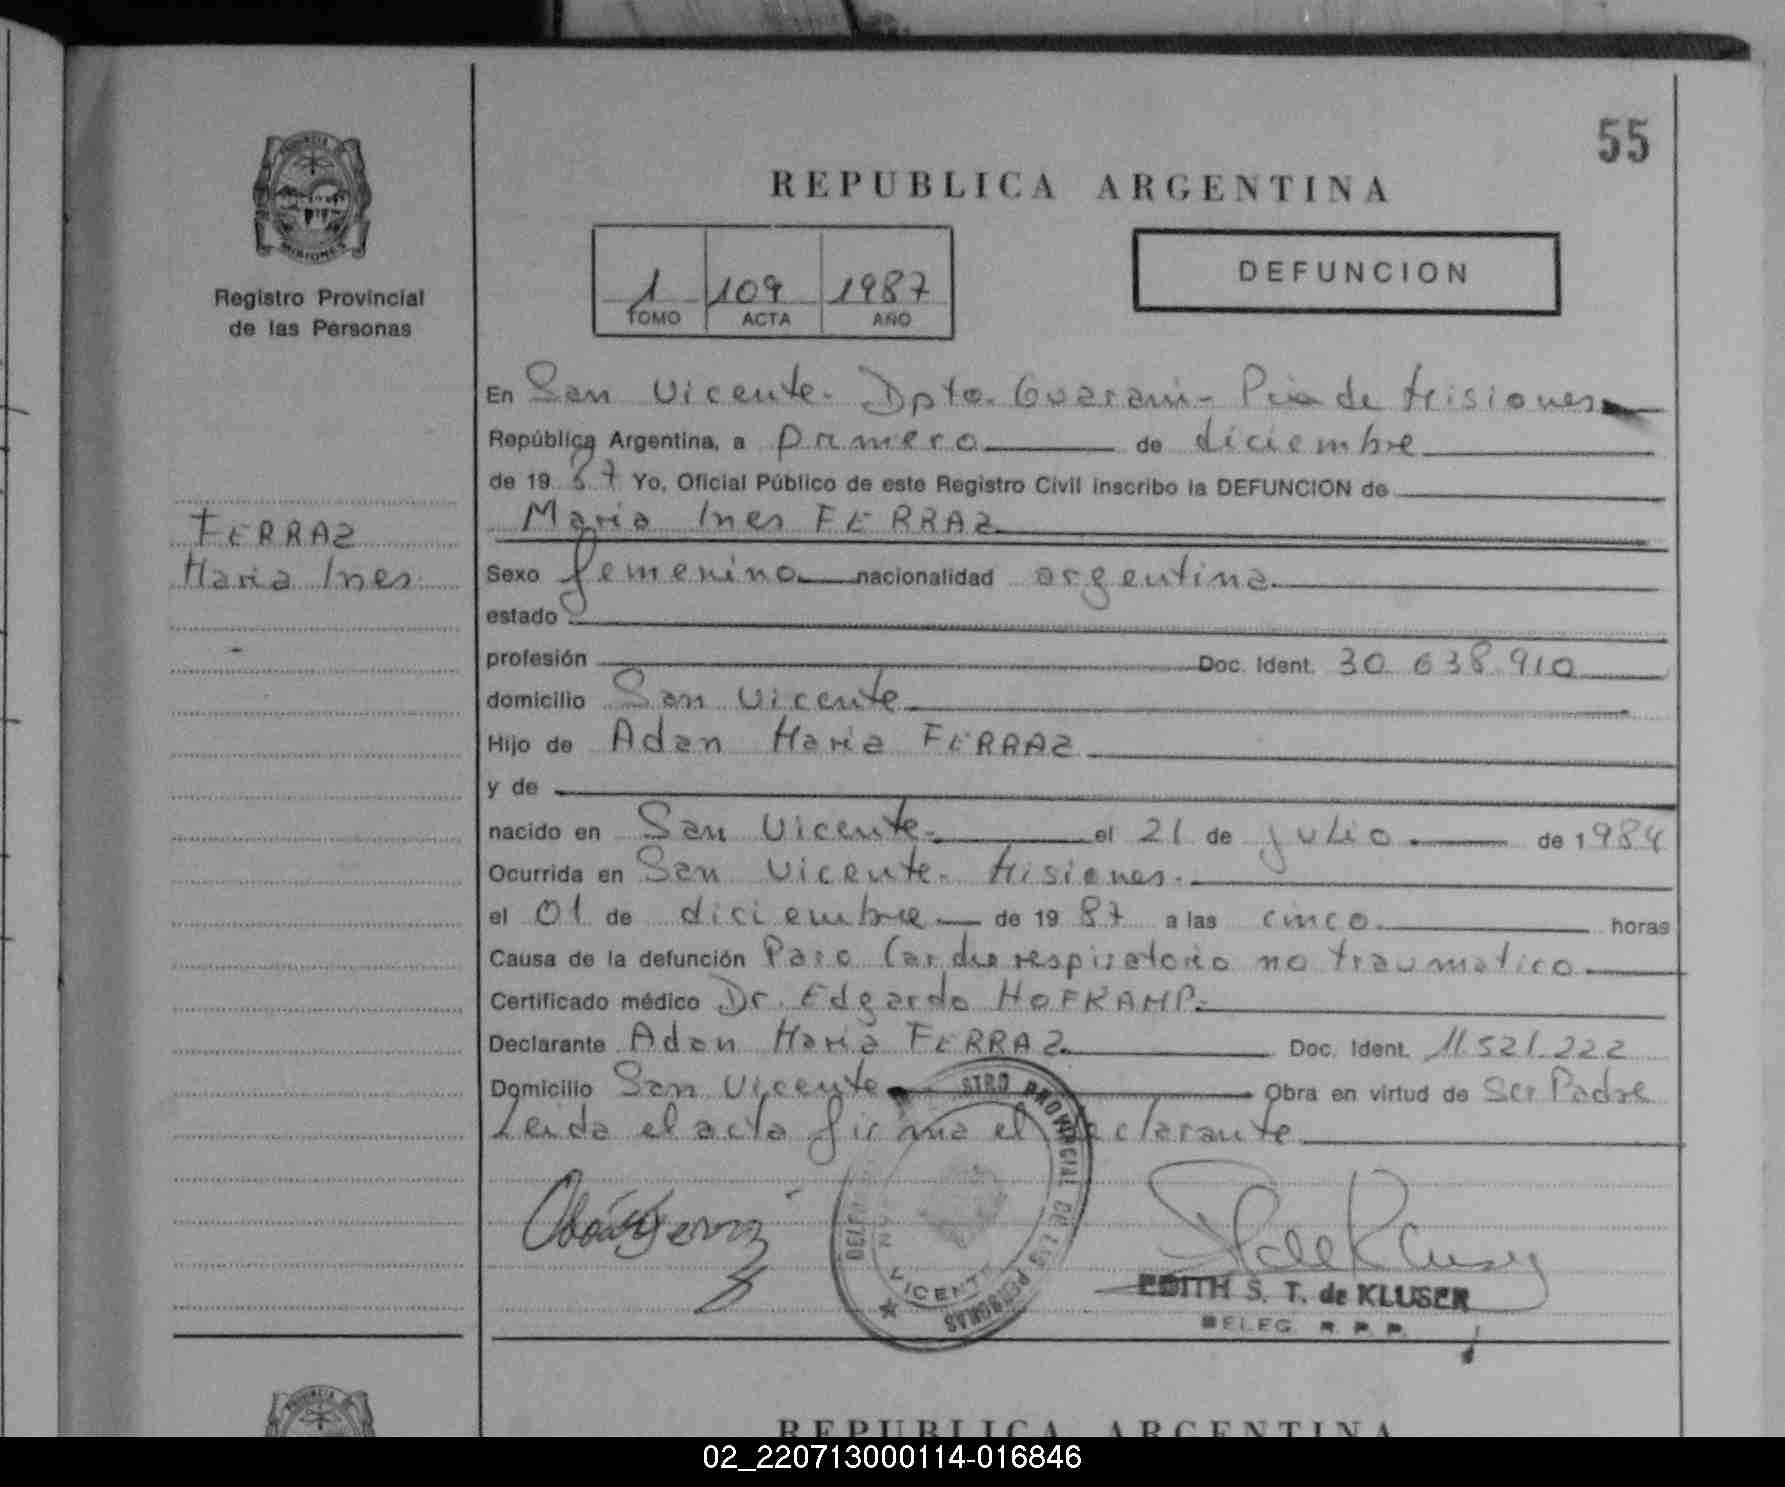 55
REPUBLICA ARGENTINA
PROVINCIA
MISIONES
Registro Provincial
de las Personas
1 109 1987
TOMO ACTA AÑO
DEFUNCION
En San Vicente - Dpto. Guarani - Pcia de Misiones
República Argentina, a primero de diciembre
de 19 87 Yo, Oficial Público de este Registro Civil inscribo la DEFUNCION de
Maria Ines FERRAZ
FERRAZ
Maria Ines
Sexo femenino nacionalidad argentina
estado
profesión Doc. Ident. 30 638 910
domicilio San Vicente
Hijo de Adan Maria FERRAZ
y de
nacido en San Vicente el 21 de julio de 1984
Ocurrida en San Vicente - Misiones
el 01 de diciembre de 19 87 a las cinco horas
Causa de la defunción Paro Cardio respiratorio no traumatico
Certificado médico Dr. Edgardo HOFKAMP
Declarante Adan Maria FERRAZ Doc. Ident. 11.521.222
Domicilio San Vicente Obra en virtud de Ser Padre
Leida el acta firma el declarante
STRO PROVINCIAL DE LAS PERSONAS
VICENTE
EDITH S. T. de KLUSER
DELEG. R. P. P.
REPUBLICA ARGENTINA
02_220713000114-016846